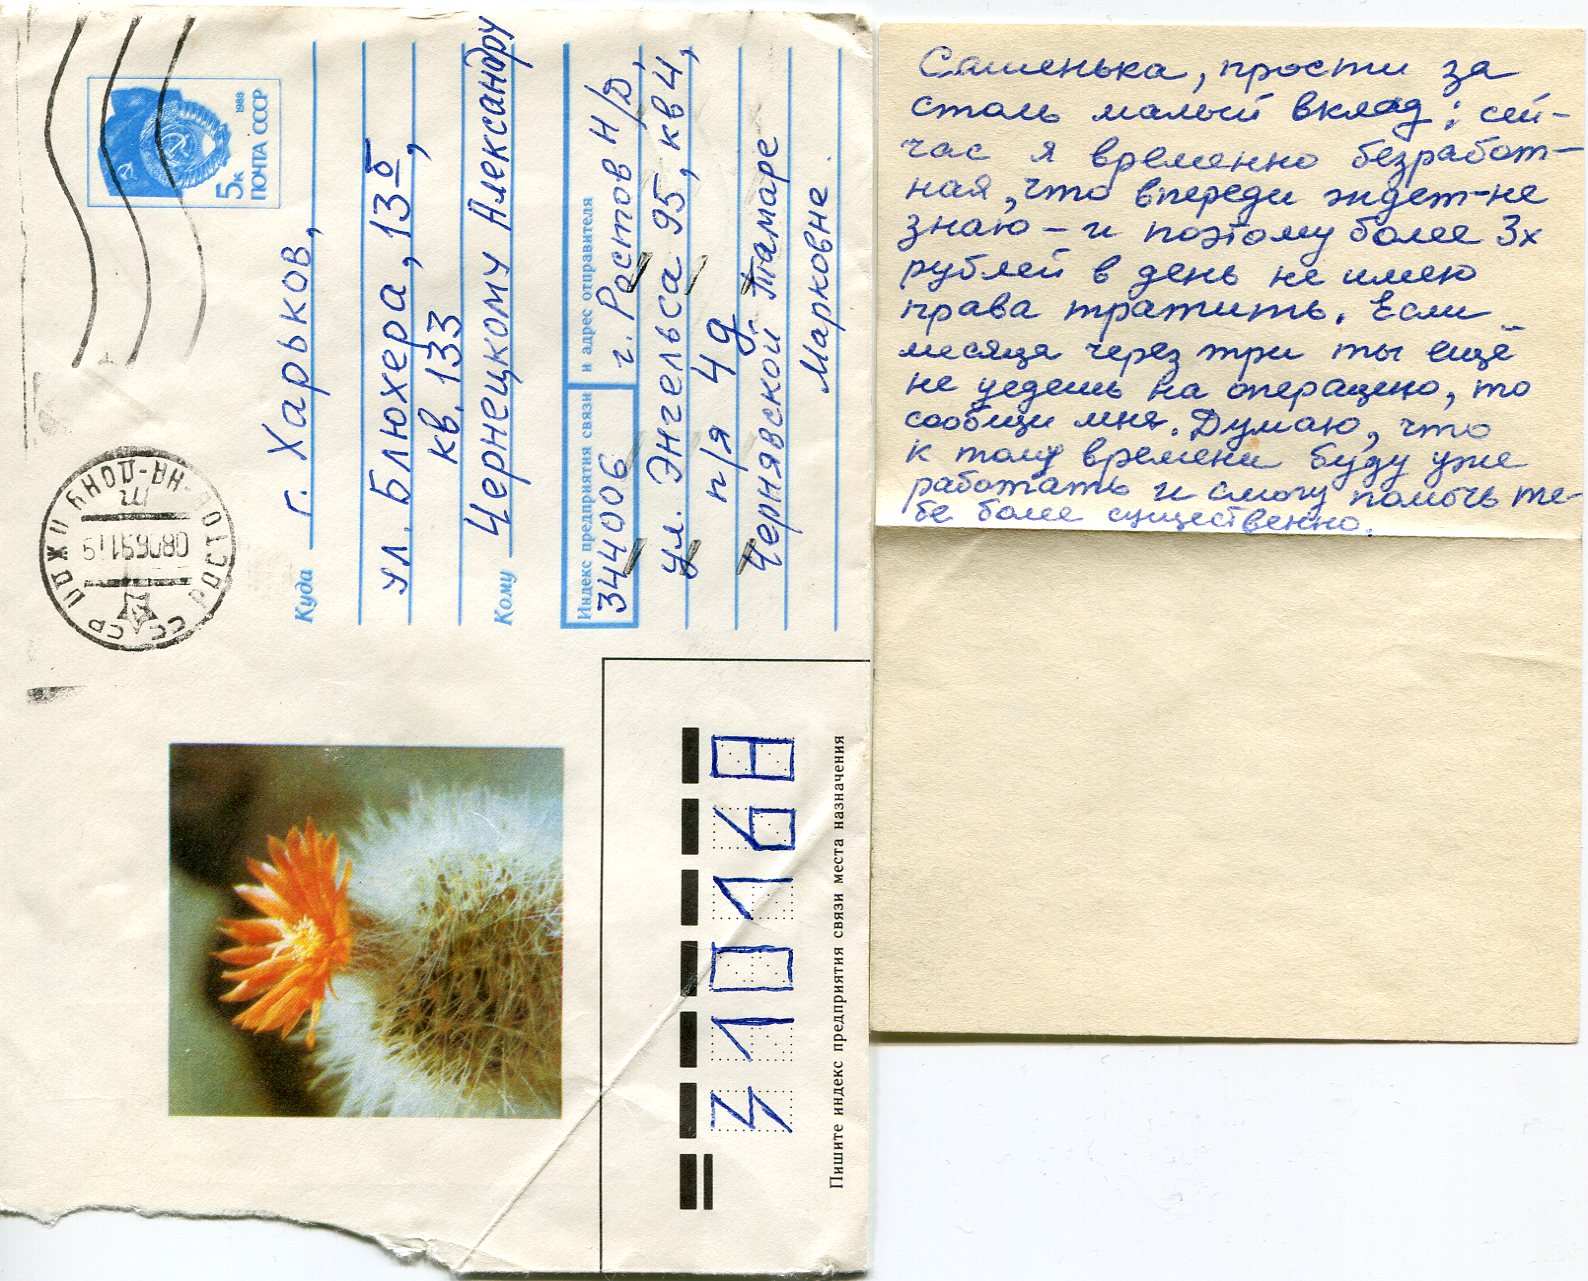 1988
5к ПОЧТА СССР
Куда г. Харьков,
ул. Блюхера, 13б,
кв. 133
Кому Чернецкому Александру
Индекс предприятия связи и адрес отправителя
344006 г. Ростов Н/Д,
ул. Энгельса 95, кв 4,
п/я 4д
Чернявской Тамаре
Марковне
310168
Пишите индекс предприятия связи места назначения
Сашенька, прости за
столь малый вклад; сей-
час я временно безработ-
ная, что впереди ждет-не
знаю – и поэтому более 3х
рублей в день не имею
права тратить. Если
месяца через три ты ещё
не уедешь на операцию, то
сообщи мне. Думаю, что
к тому времени буду уже
работать и смогу помочь те-
бе более существенно.